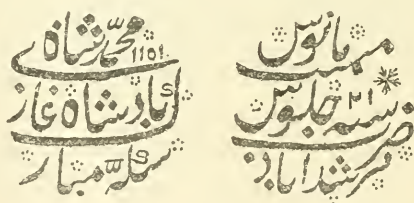 محمد شاه
ی ۱۱۵۱
بادشاه غاز
ک
سکه مبار
مانوس
میمنت
سنه ۲۱ جلوس
ضرب
مرشداباد